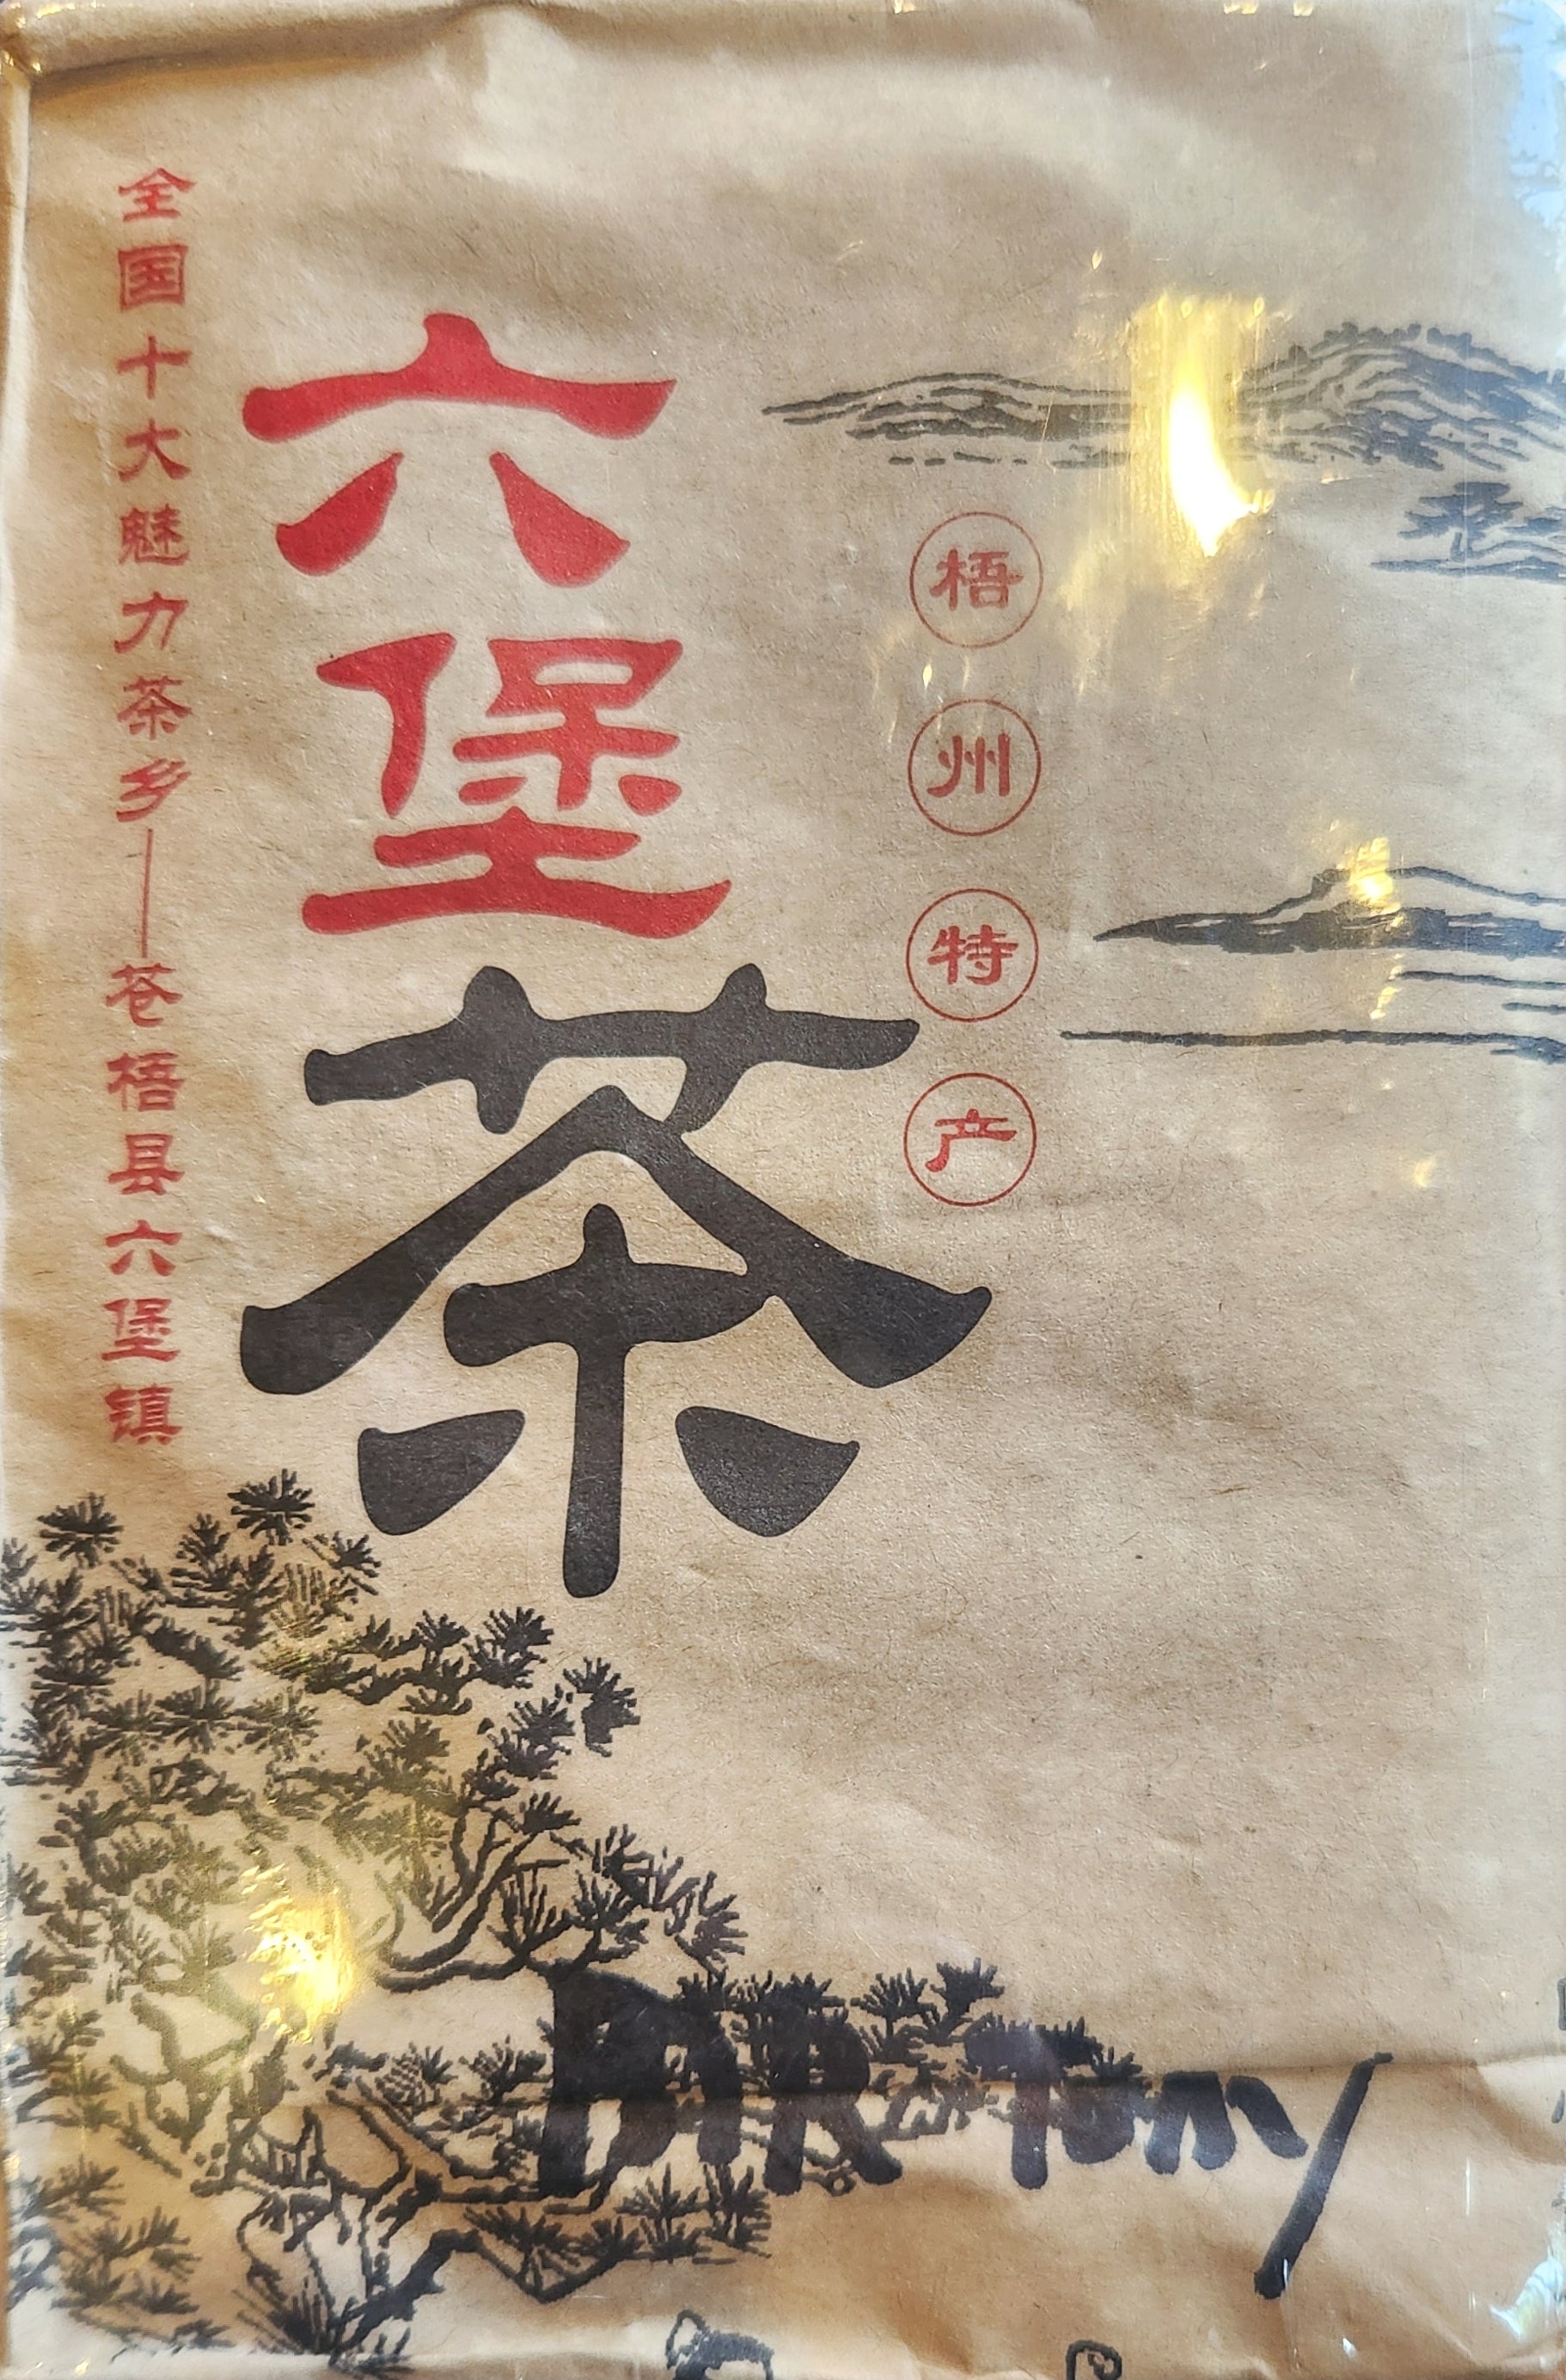 全国十大魅力茶乡——苍梧县六堡镇
六堡茶
梧州特产
DIR Tomy